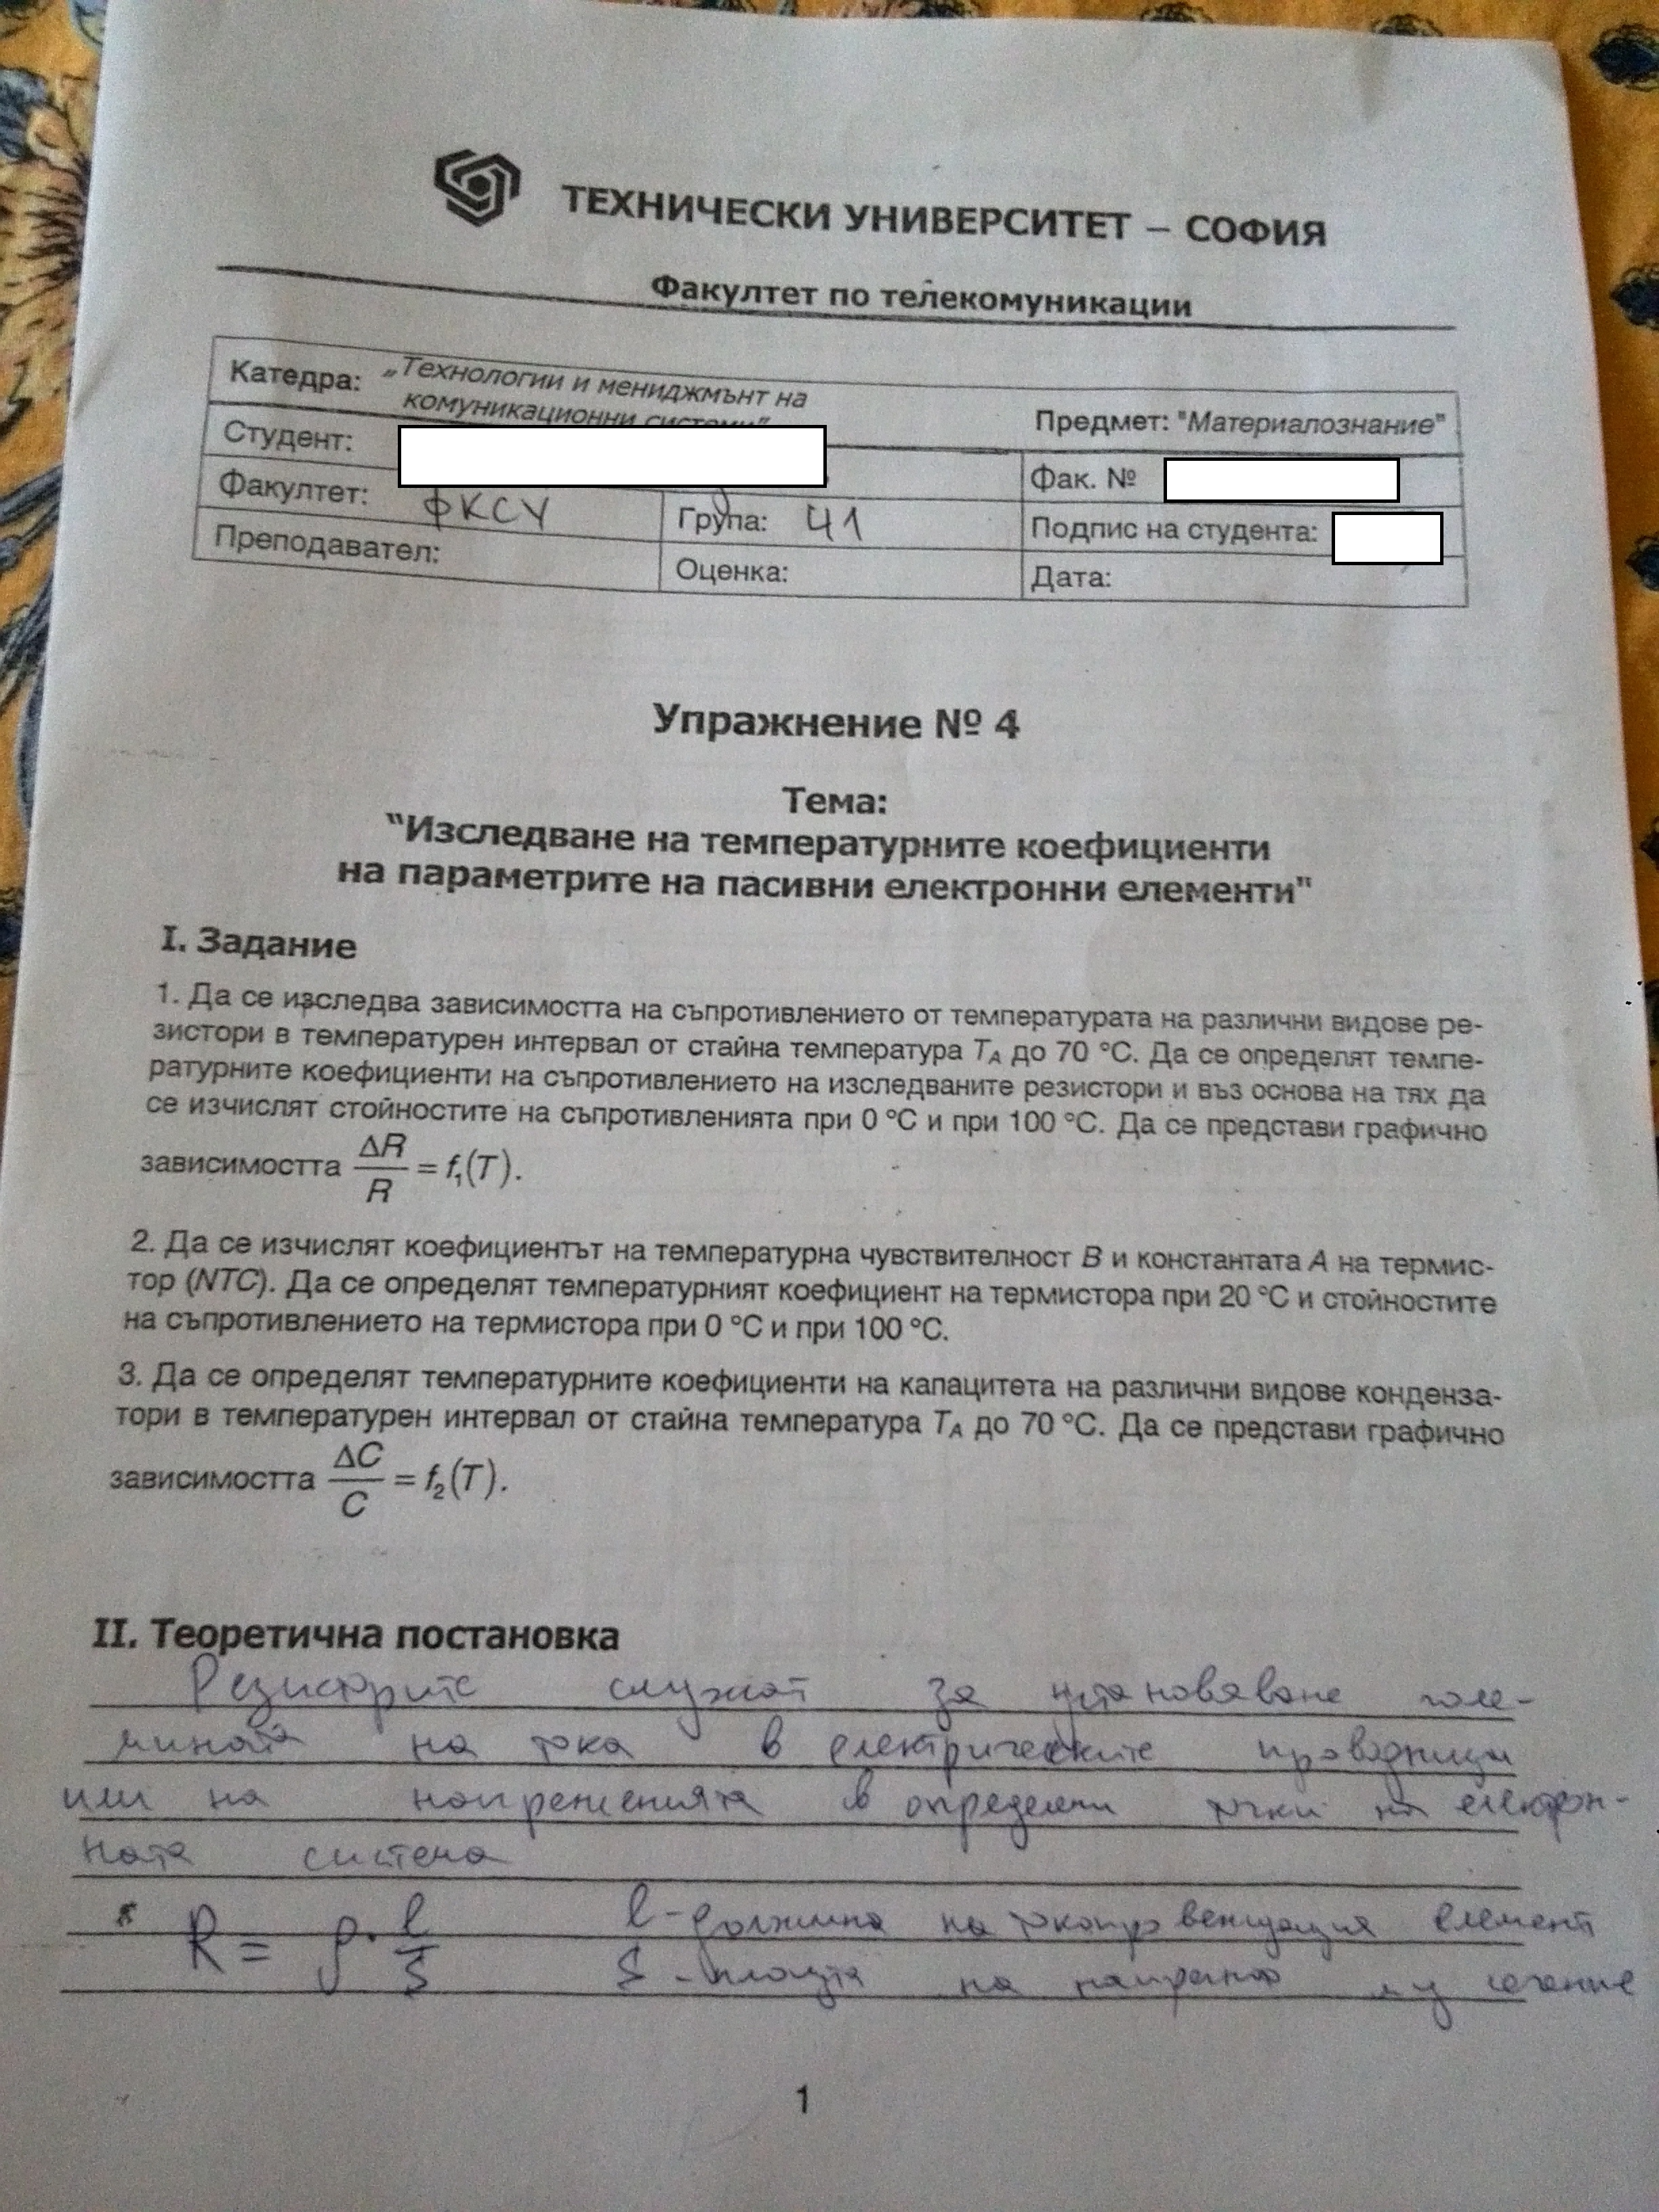 ТЕХНИЧЕСКИ УНИВЕРСИТЕТ – СОФИЯ
Факултет по телекомуникации
Катедра: „Технологии и мениджмънт на
комуникационни системи"
Предмет: "Материалознание"
Студент:
Фак. №
Факултет: ФКСУ
Група: 41
Подпис на студента:
Преподавател:
Оценка:
Дата:
Упражнение № 4
Тема:
"Изследване на температурните коефициенти
на параметрите на пасивни електронни елементи"
I. Задание
1. Да се изследва зависимостта на съпротивлението от температурата на различни видове ре-
зистори в температурен интервал от стайна температура T_A до 70 °C. Да се определят темпе-
ратурните коефициенти на съпротивлението на изследваните резистори и въз основа на тях да
се изчислят стойностите на съпротивленията при 0 °C и при 100 °C. Да се представи графично
зависимостта ΔR/R = f₁(T).
2. Да се изчислят коефициентът на температурна чувствителност B и константата A на термис-
тор (NTC). Да се определят температурният коефициент на термистора при 20 °C и стойностите
на съпротивлението на термистора при 0 °C и при 100 °C.
3. Да се определят температурните коефициенти на капацитета на различни видове конденза-
тори в температурен интервал от стайна температура T_A до 70 °C. Да се представи графично
зависимостта ΔC/C = f₂(T).
II. Теоретична постановка
Резисторите служат за установяване голе-
мината на тока в електрическите проводници
или на напреженията в определени точки на електрон-
ната система
* R = ρ · l/S l - дължина на токопровеждащия елемент
S - площта на напречното му сечение
1